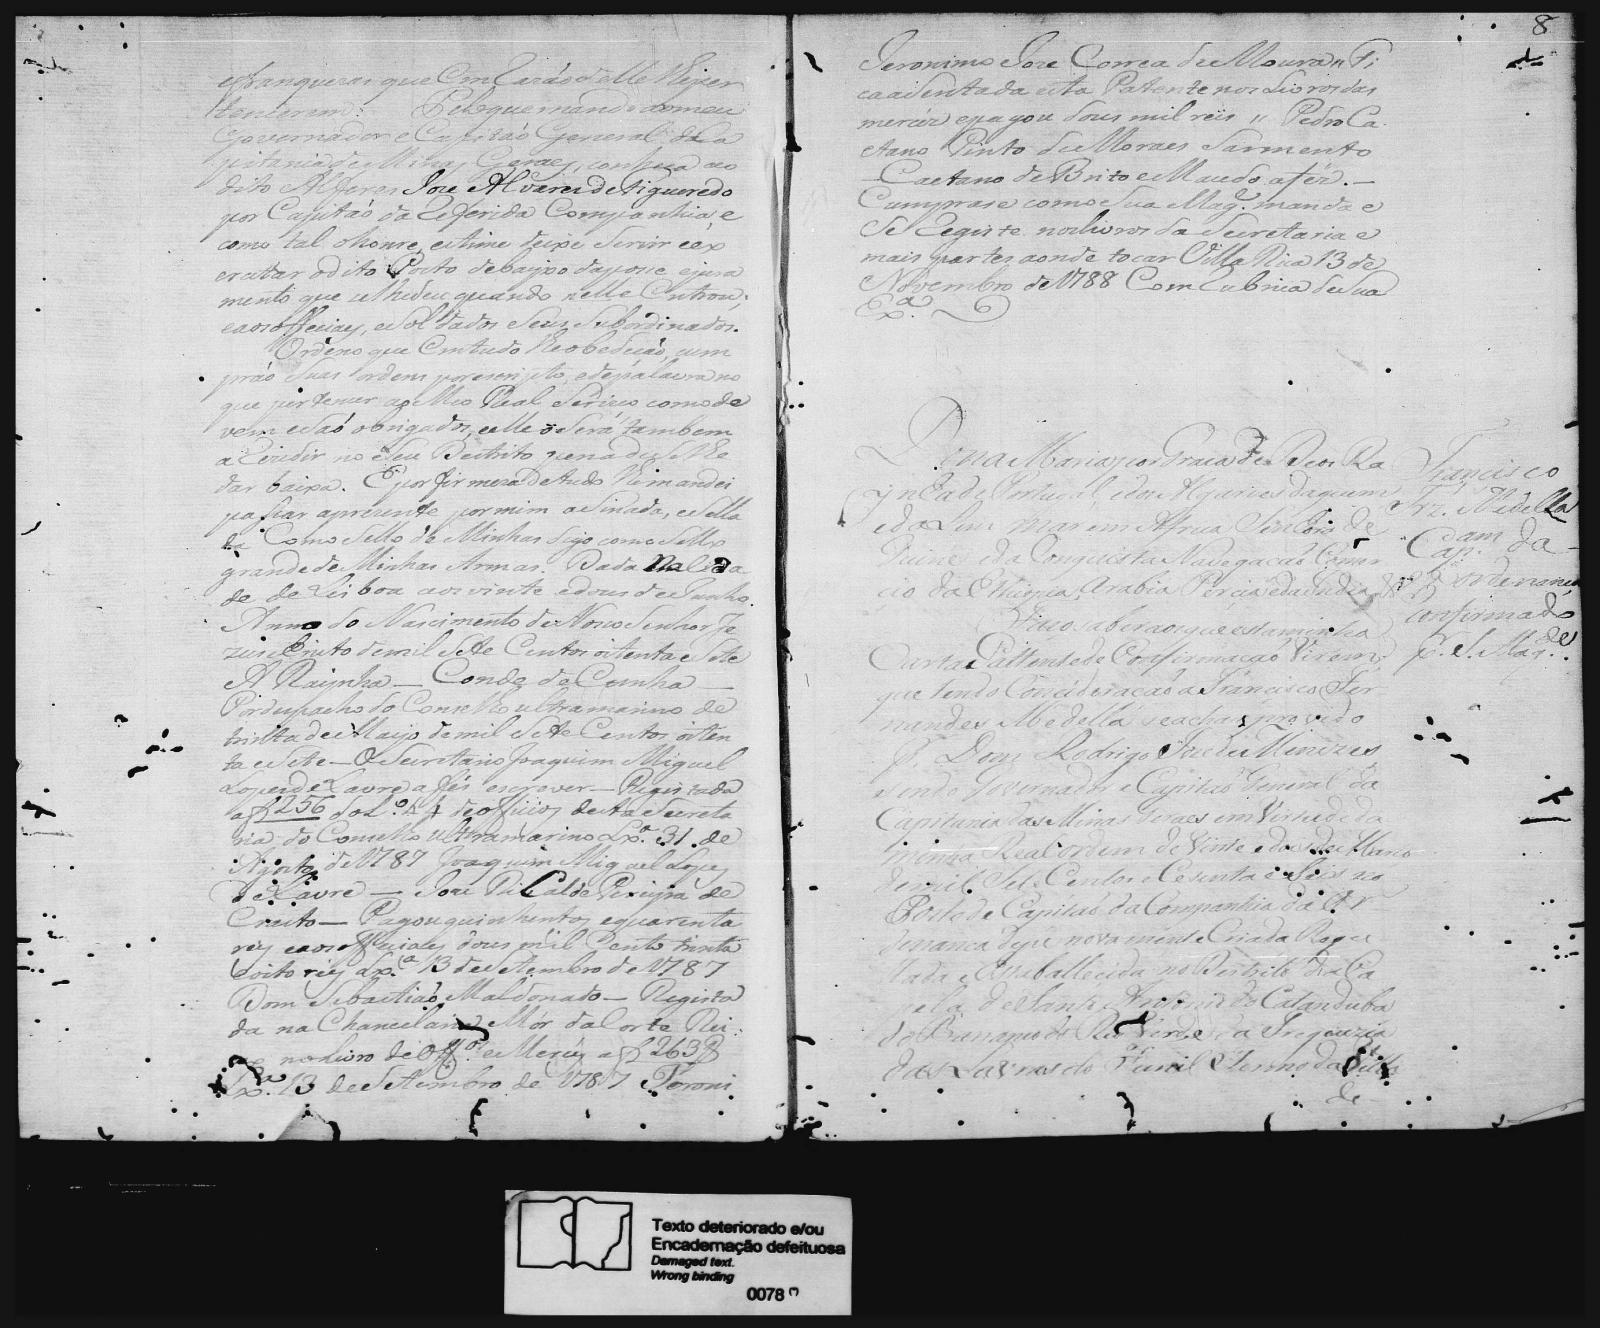 efranquezas que Em Razaõ delle lhe per
tencerem: Pelo que mando ao meu
Governador e Capitaõ General da Ca
pitania de Minas Geraes, conheça ao
dito Alferes Joze Alvares de Figueredo
por Capitaõ da Referida Companhia e
como tal o honre, estime deixe Servir e ex
ercitar o dito Posto debayxo da posse e jura
mento que selhe deu quando nelle Entrou;
e aos officiaes, e Soldados Seus Subordinados.
Ordeno que Em tudo lhe obedeçaõ, cum
praõ Suas ordens por escripto, e de palavra no
que pertencer ao Meo Real Serviço como de
vem e Saõ obrigados, e elle Será tambem
a Rezidir no Seu Destrito pena de Se lhe
dar baixa. E por firmeza de tudo lhe mandei
passar a prezente por mim asinada, e Sella
da Com o Sello de Minhas digo com o Sello
grande de Minhas Armas. Dada Na Cida
de de Lisboa aos vinte e dous de Junho
Anno do Nascimento de Nosso Senhor Je
zus Cristo de mil Sete Centos oitenta e Sete
A Raynha — Conde da Cunha —
Por despacho do Conselho ultramarino de
trinta de Mayo de mil Sete Centos oiten
ta e Sete — O Secretario Joaquim Miguel
Lopes de Lavre a fes escrever — Registada
a f 256 do L.º 44 de officios desta Secreta
ria do Conselho ultramarino Lx.ª 31. de
Agosto de 1787 Joaquim Miguel Lopes
de Lavre — Joze Ricalde Pereira de
Crasto — Pagou quinhentos e quarenta
reis e aos officiaes dous mil Cento trinta
e oito reis Lx.ª 13 de Setembro de 1787
Dom Sebastiaõ Maldonado — Regista
da na Chancelaria Mór da Corte Rei
no no livro de Off.os e Merces a f 263
Lx.ª 13 de Setembro de 1787 Jeroni
8
Jeronimo Joze Correa de Moura " Fi
ca asentada esta Patente nos Livros das
merces e pagou dous mil reis " Pedro Ca
etano Pinto de Moraes Sarmento
Caetano de Brito e Macedo a fez. —
Cumprase como Sua Mag.e manda e
Se Registe nos livros da Secretaria e
mais partes aonde tocar Villa Rica 13 de
Novembro de 1788 Com Rubrica de Sua
Ex.ª
Dona Maria por Graça de Deos Ra
ynha de Portugal, e dos Algarves daquem
e dalem mar em Africa Senhora de
Guiné e da Conquista Navegaçaõ Comer
cio da Ethiopia, Arabia Percia e da India &
Faço saber aos que esta minha
Carta Pattente de Confirmaçaõ virem
que tendo Concideraçaõ a Francisco Fer
nandes Medella se achar provido
p. Dom Rodrigo Joze de Menezes
sendo Governador e Capitaõ General da
Capitania das Minas Geraes em Virtude da
minha Real ordem de Vinte e dous de Março
de mil Sete Centos e Cesenta e Seis no
Posto de Capitaõ da Companhia da Or
denança de pe novamente Criada
e Estabellecida no Destrito da Ca
pela de Santo Antonio do Catanduba
do Rio Verde da Freguezia
das Lavras do Funil e Termo da Villa
de
Francisco
Frz. Medella
Cap.am da
ordenança
Confirmado
p. S. Mag.de
Texto deteriorado e/ou
Encadernação defeituosa
Damaged text.
Wrong binding
0078 (*)